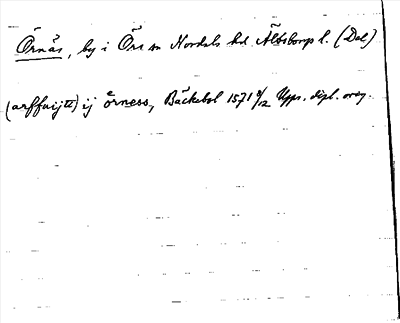 Örnäs, by i Örs sn Nordals hd. Älvsborgs l. (Dal)
(arffuijtt) ij örness, Bäckebol 1571 8/12 Upps. dipl. orig.